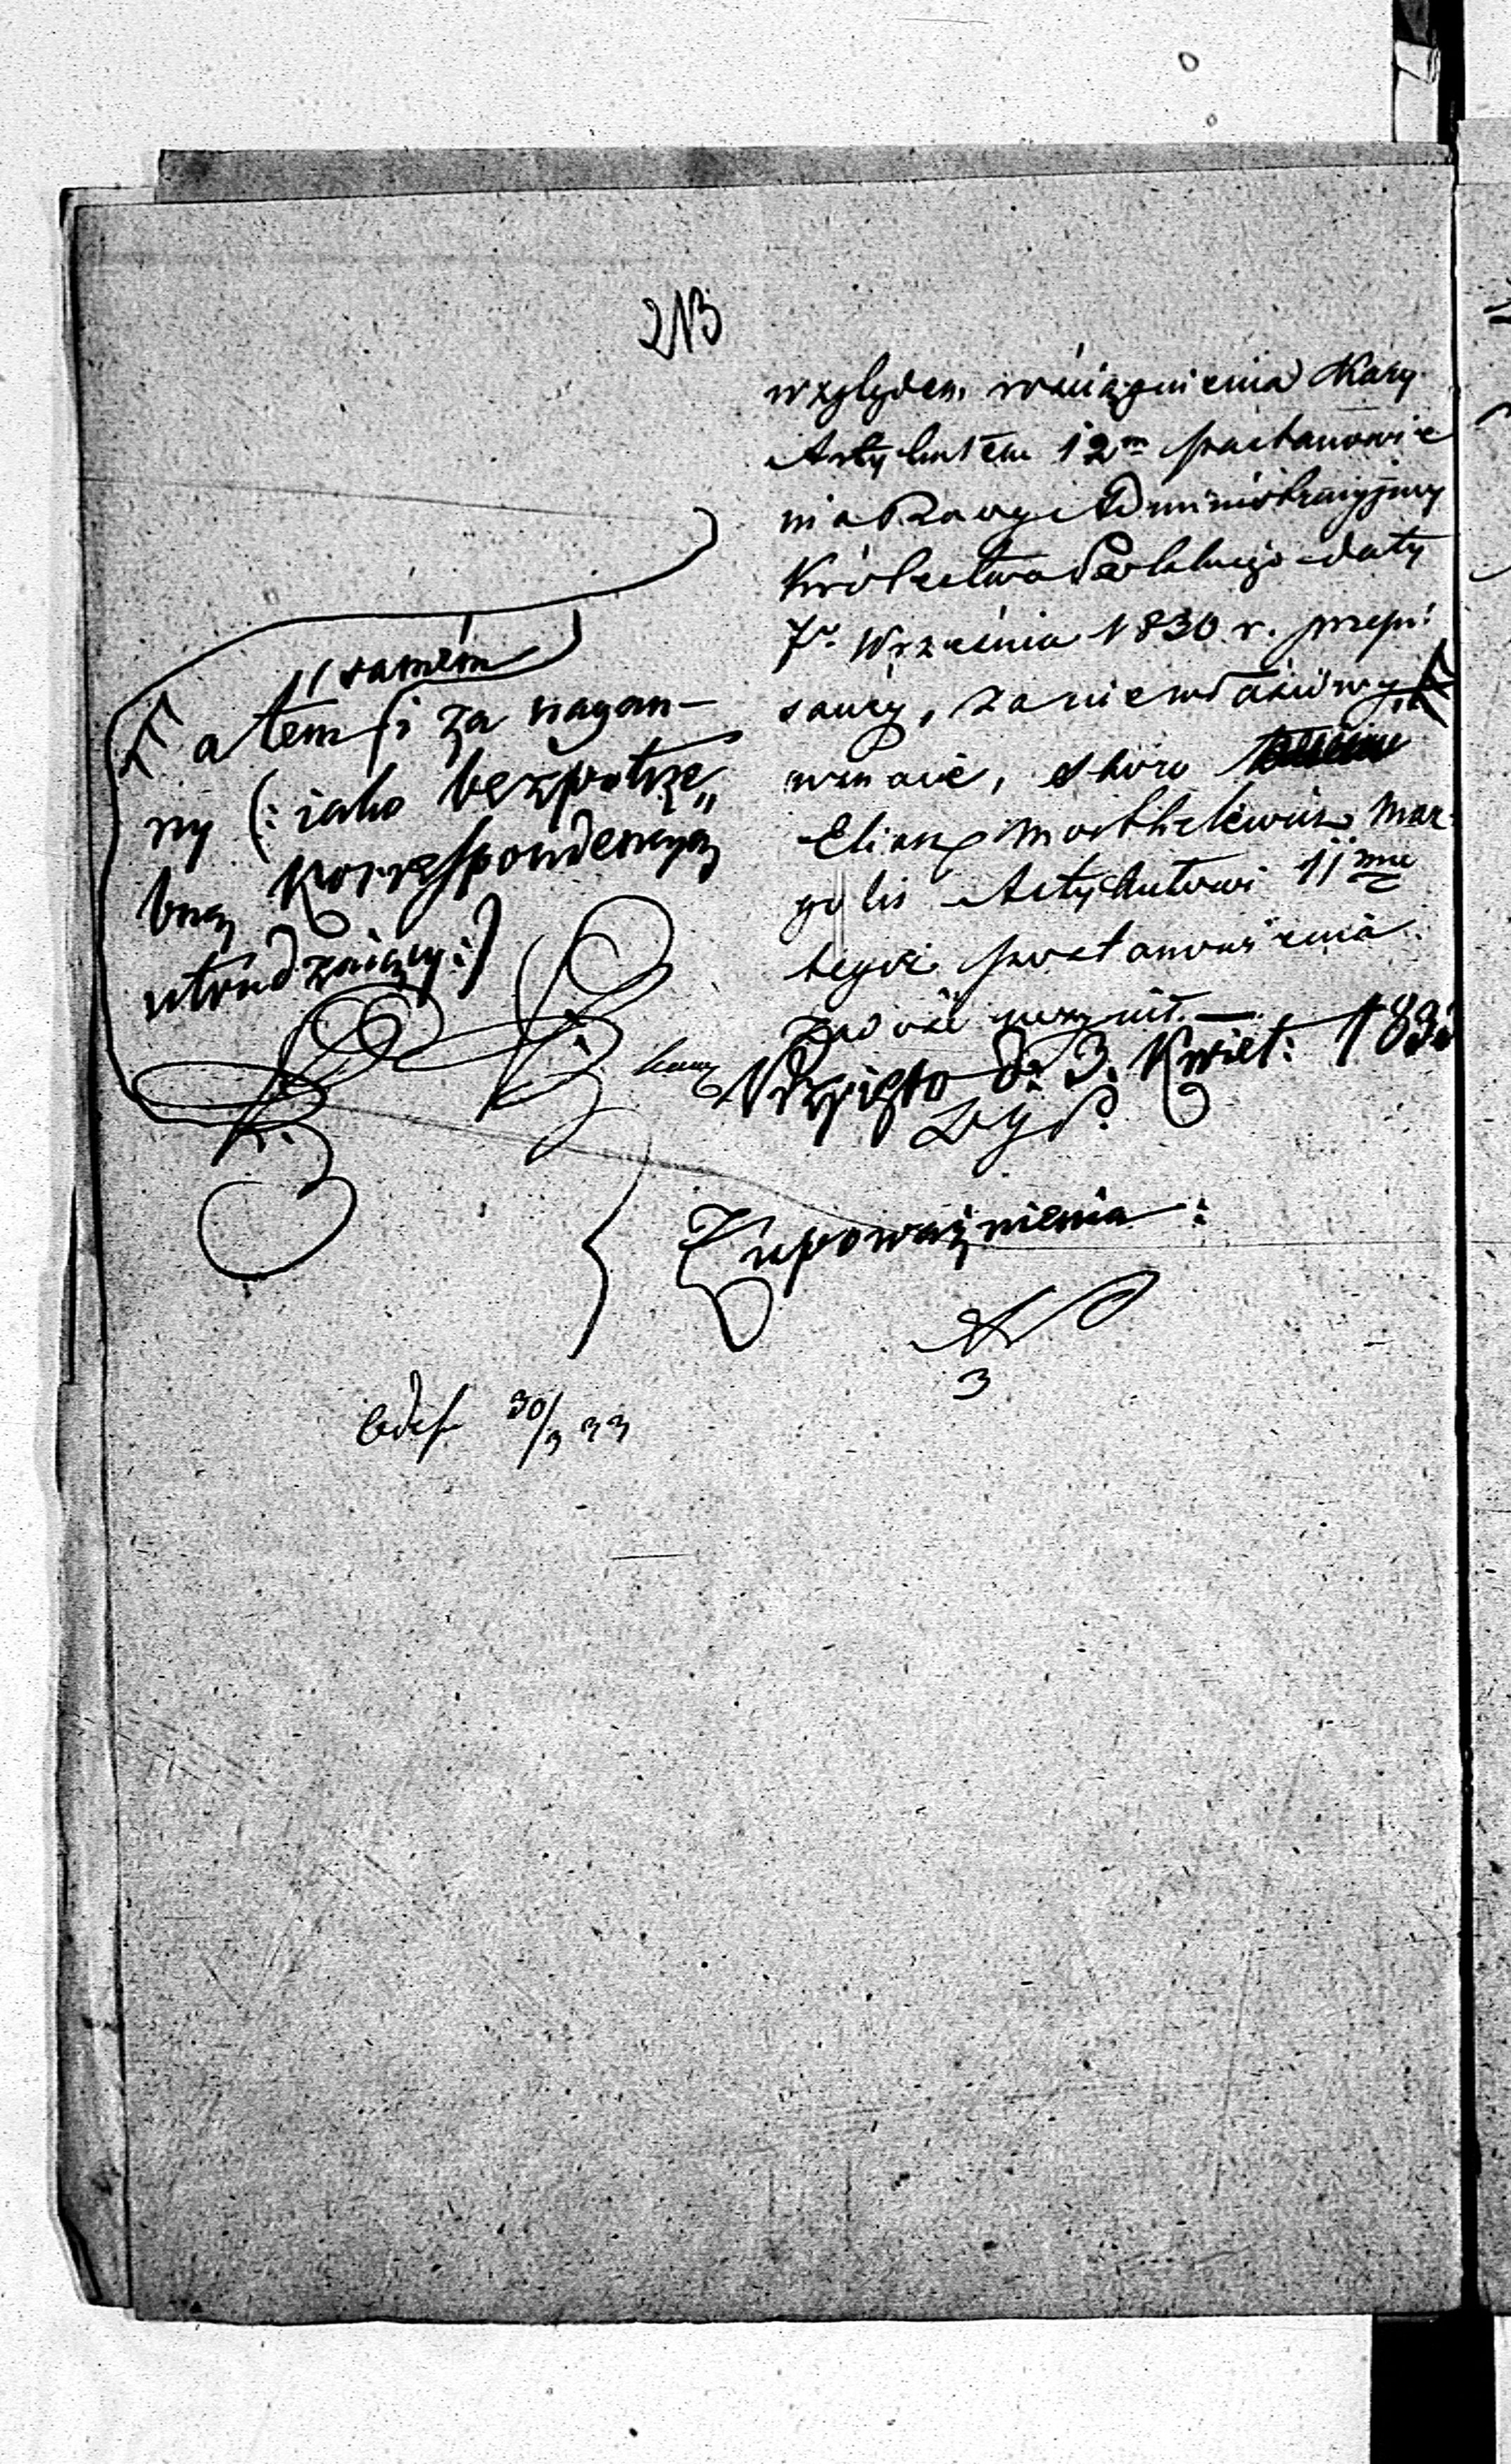 213
względem wściągnienia Kary
Artykułem 12m postanowie
nia Rady Administracyjney
Królestwa Polskiego daty
7o Września 1830 r. przepi
saney, za niewłaściwy,
uznaie, skoro
Eliasz Moszkelewicz Mar
golis Artykułowi 11mu
tegoż postanowienia
zadość uczynił.—
// samém
a tem i za nagan—
ny (: iako bezpotrze„
bną Korrespondencyą
utrudzaiący :)
Przyięto d. 3. Kwiet: 183
Z upoważnienia :
3
30/3 33